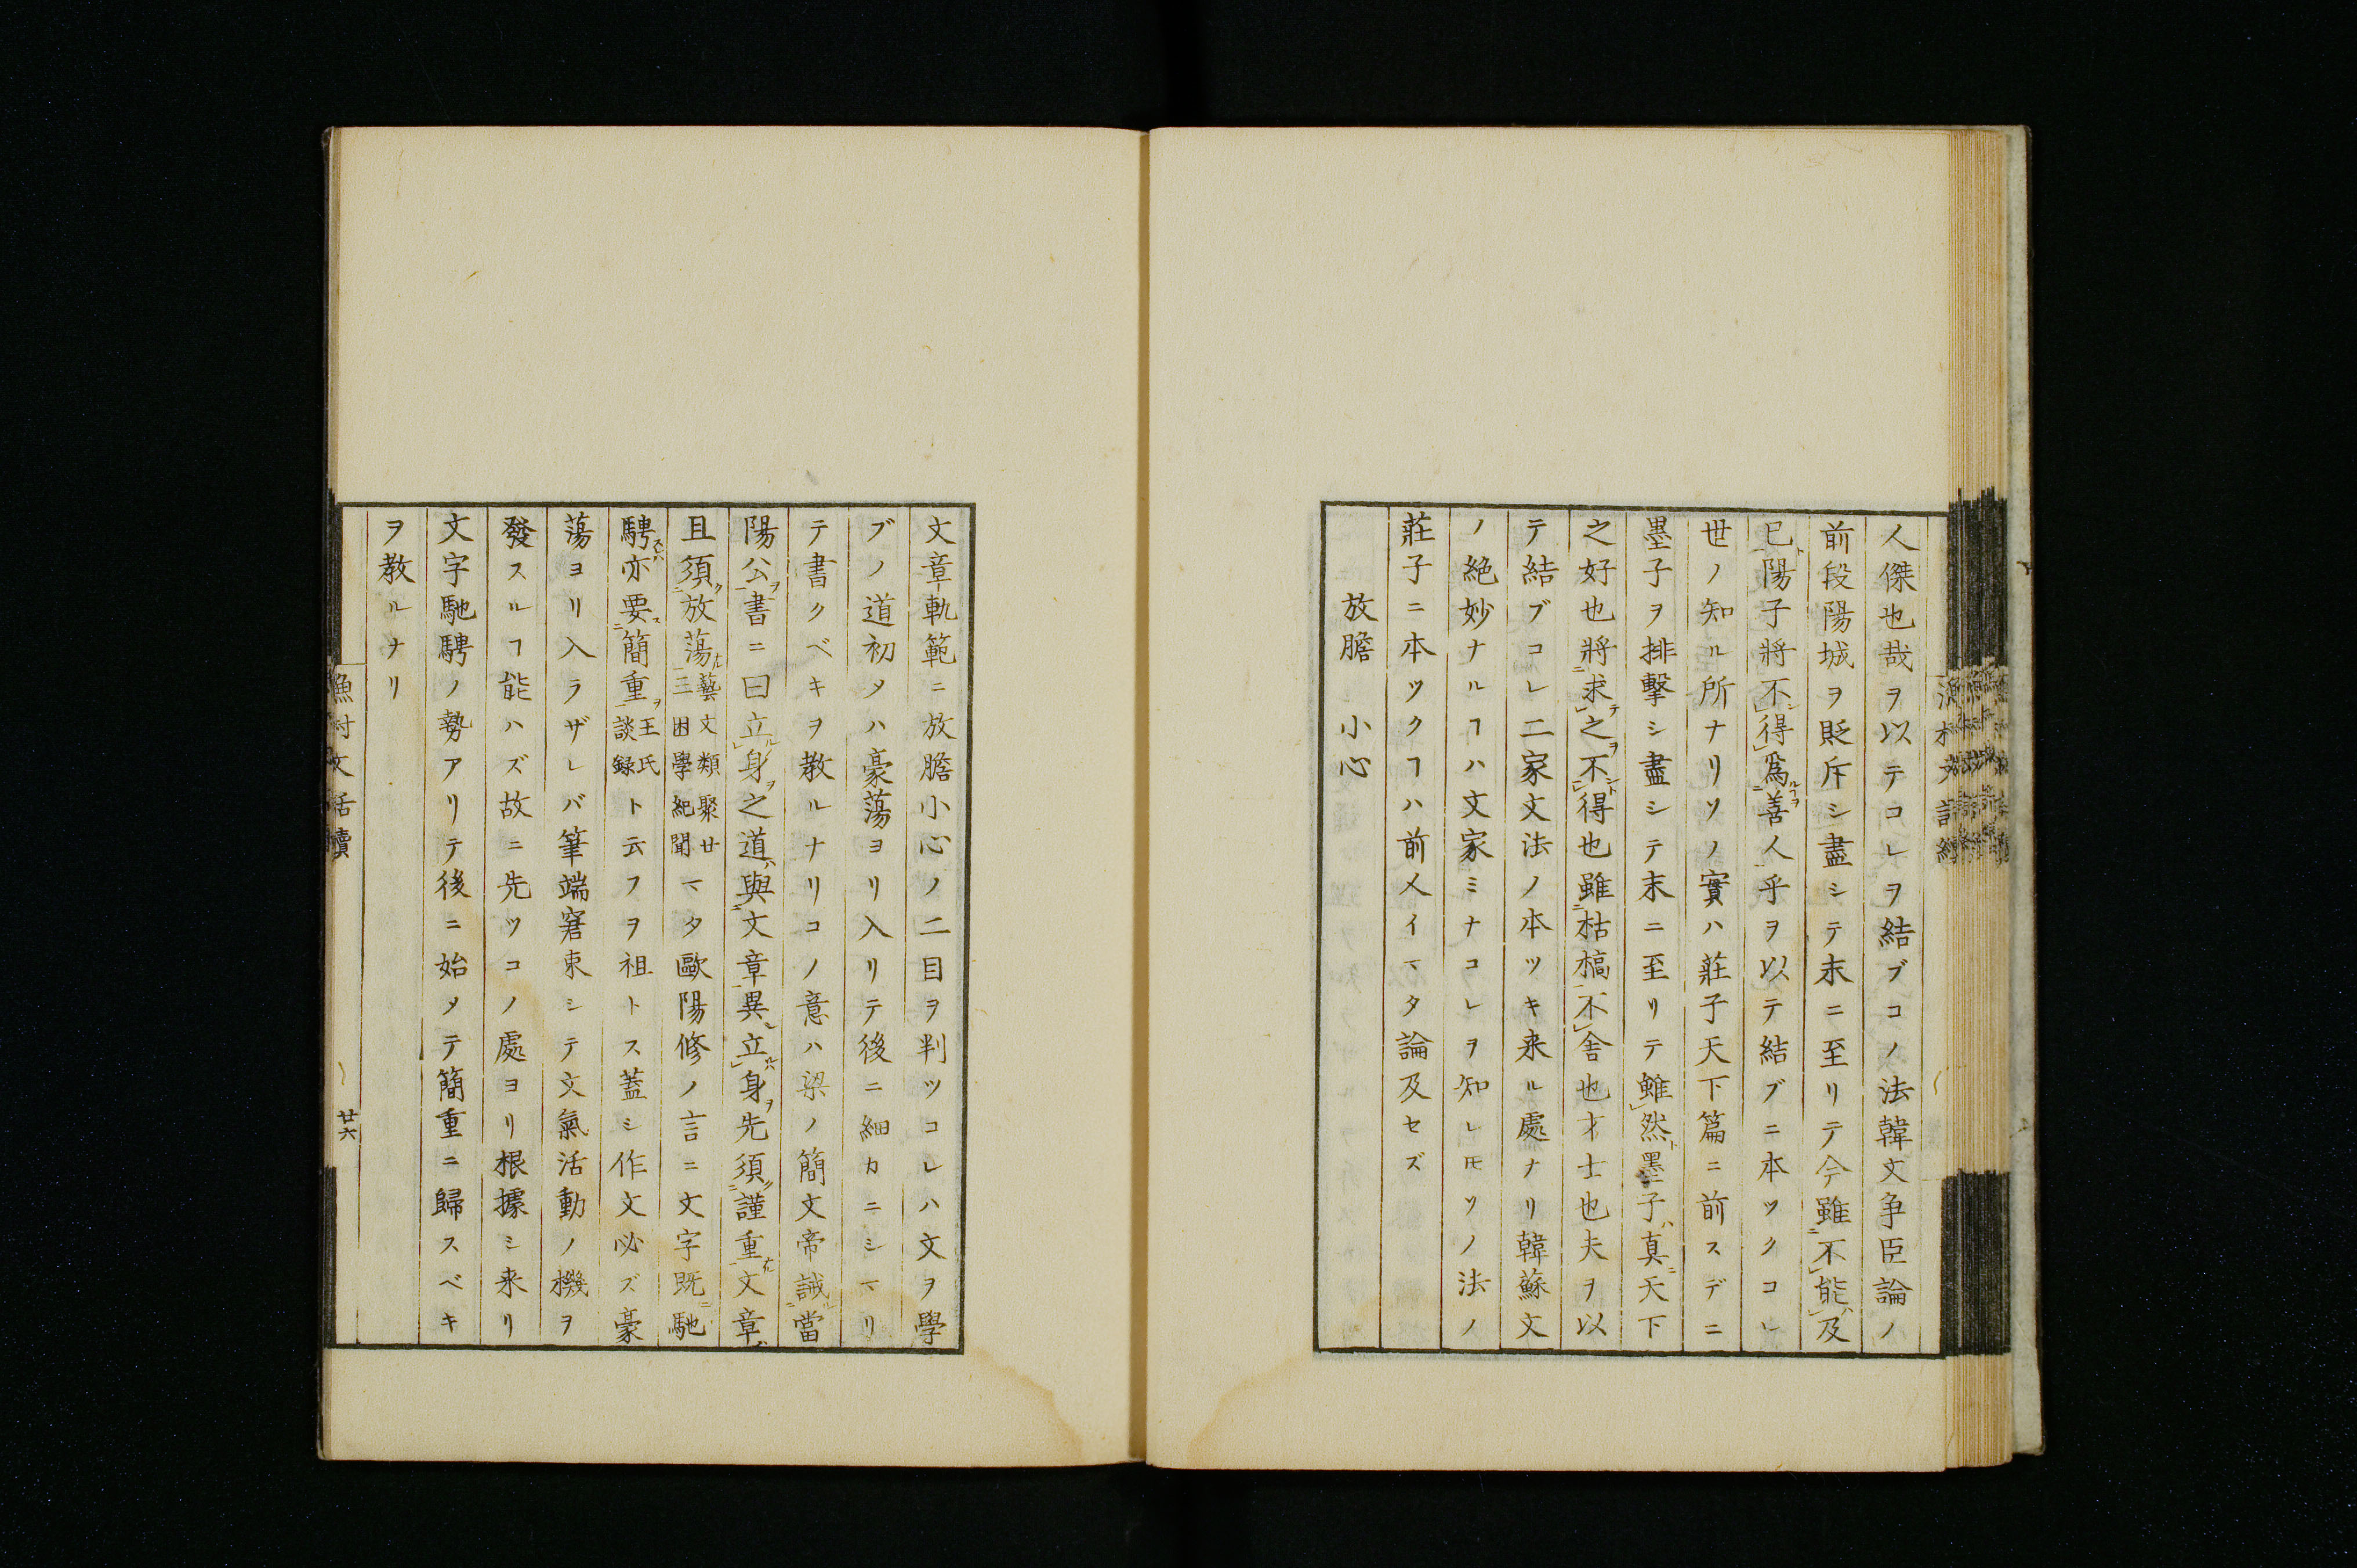 人傑也哉ヲ以テコレヲ結ブコノ法韓文争臣論ノ
前段陽城ヲ貶斥シ盡シテ末ニ至リテ今雖不能及
已陽子將不得爲善人乎ヲ以テ結ブニ本ツクコレ
世ノ知ル所ナリソノ實ハ莊子天下篇ニ前スデニ
墨子ヲ排擊シ盡シテ末ニ至リテ雖然墨子真天下
之好也將求之不得也雖枯槁不舎也才士也夫ヲ以
テ結ブコレ二家文法ノ本ツキ来ル處ナリ韓蘇文
ノ絶妙ナルヿハ文家ミナコレヲ知レ𪜈ソノ法ノ
莊子ニ本ツクヿハ前人イマタ論及セズ
放膽 小心
文章軌範ニ放膽小心ノ二目ヲ判ツコレハ文ヲ學
ブノ道初メハ豪蕩ヨリ入リテ後ニ細カニシマリ
テ書クベキヲ教ルナリコノ意ハ梁ノ簡文帝誡當
陽公書ニ曰立身之道與文章異立身先須謹重文章
且須放蕩藝文類聚廿三困學紀聞マタ歐陽修ノ言ニ文字既馳
騁亦要簡重王氏談録ト云フヲ祖トス蓋シ作文必ズ豪
蕩ヨリ入ラザレバ筆端窘束シテ文氣活動ノ機ヲ
發スルヿ能ハズ故ニ先ツコノ處ヨリ根據シ来リ
文字馳騁ノ勢アリテ後ニ始メテ簡重ニ歸スベキ
ヲ教ルナリ
漁村文話續
廿六